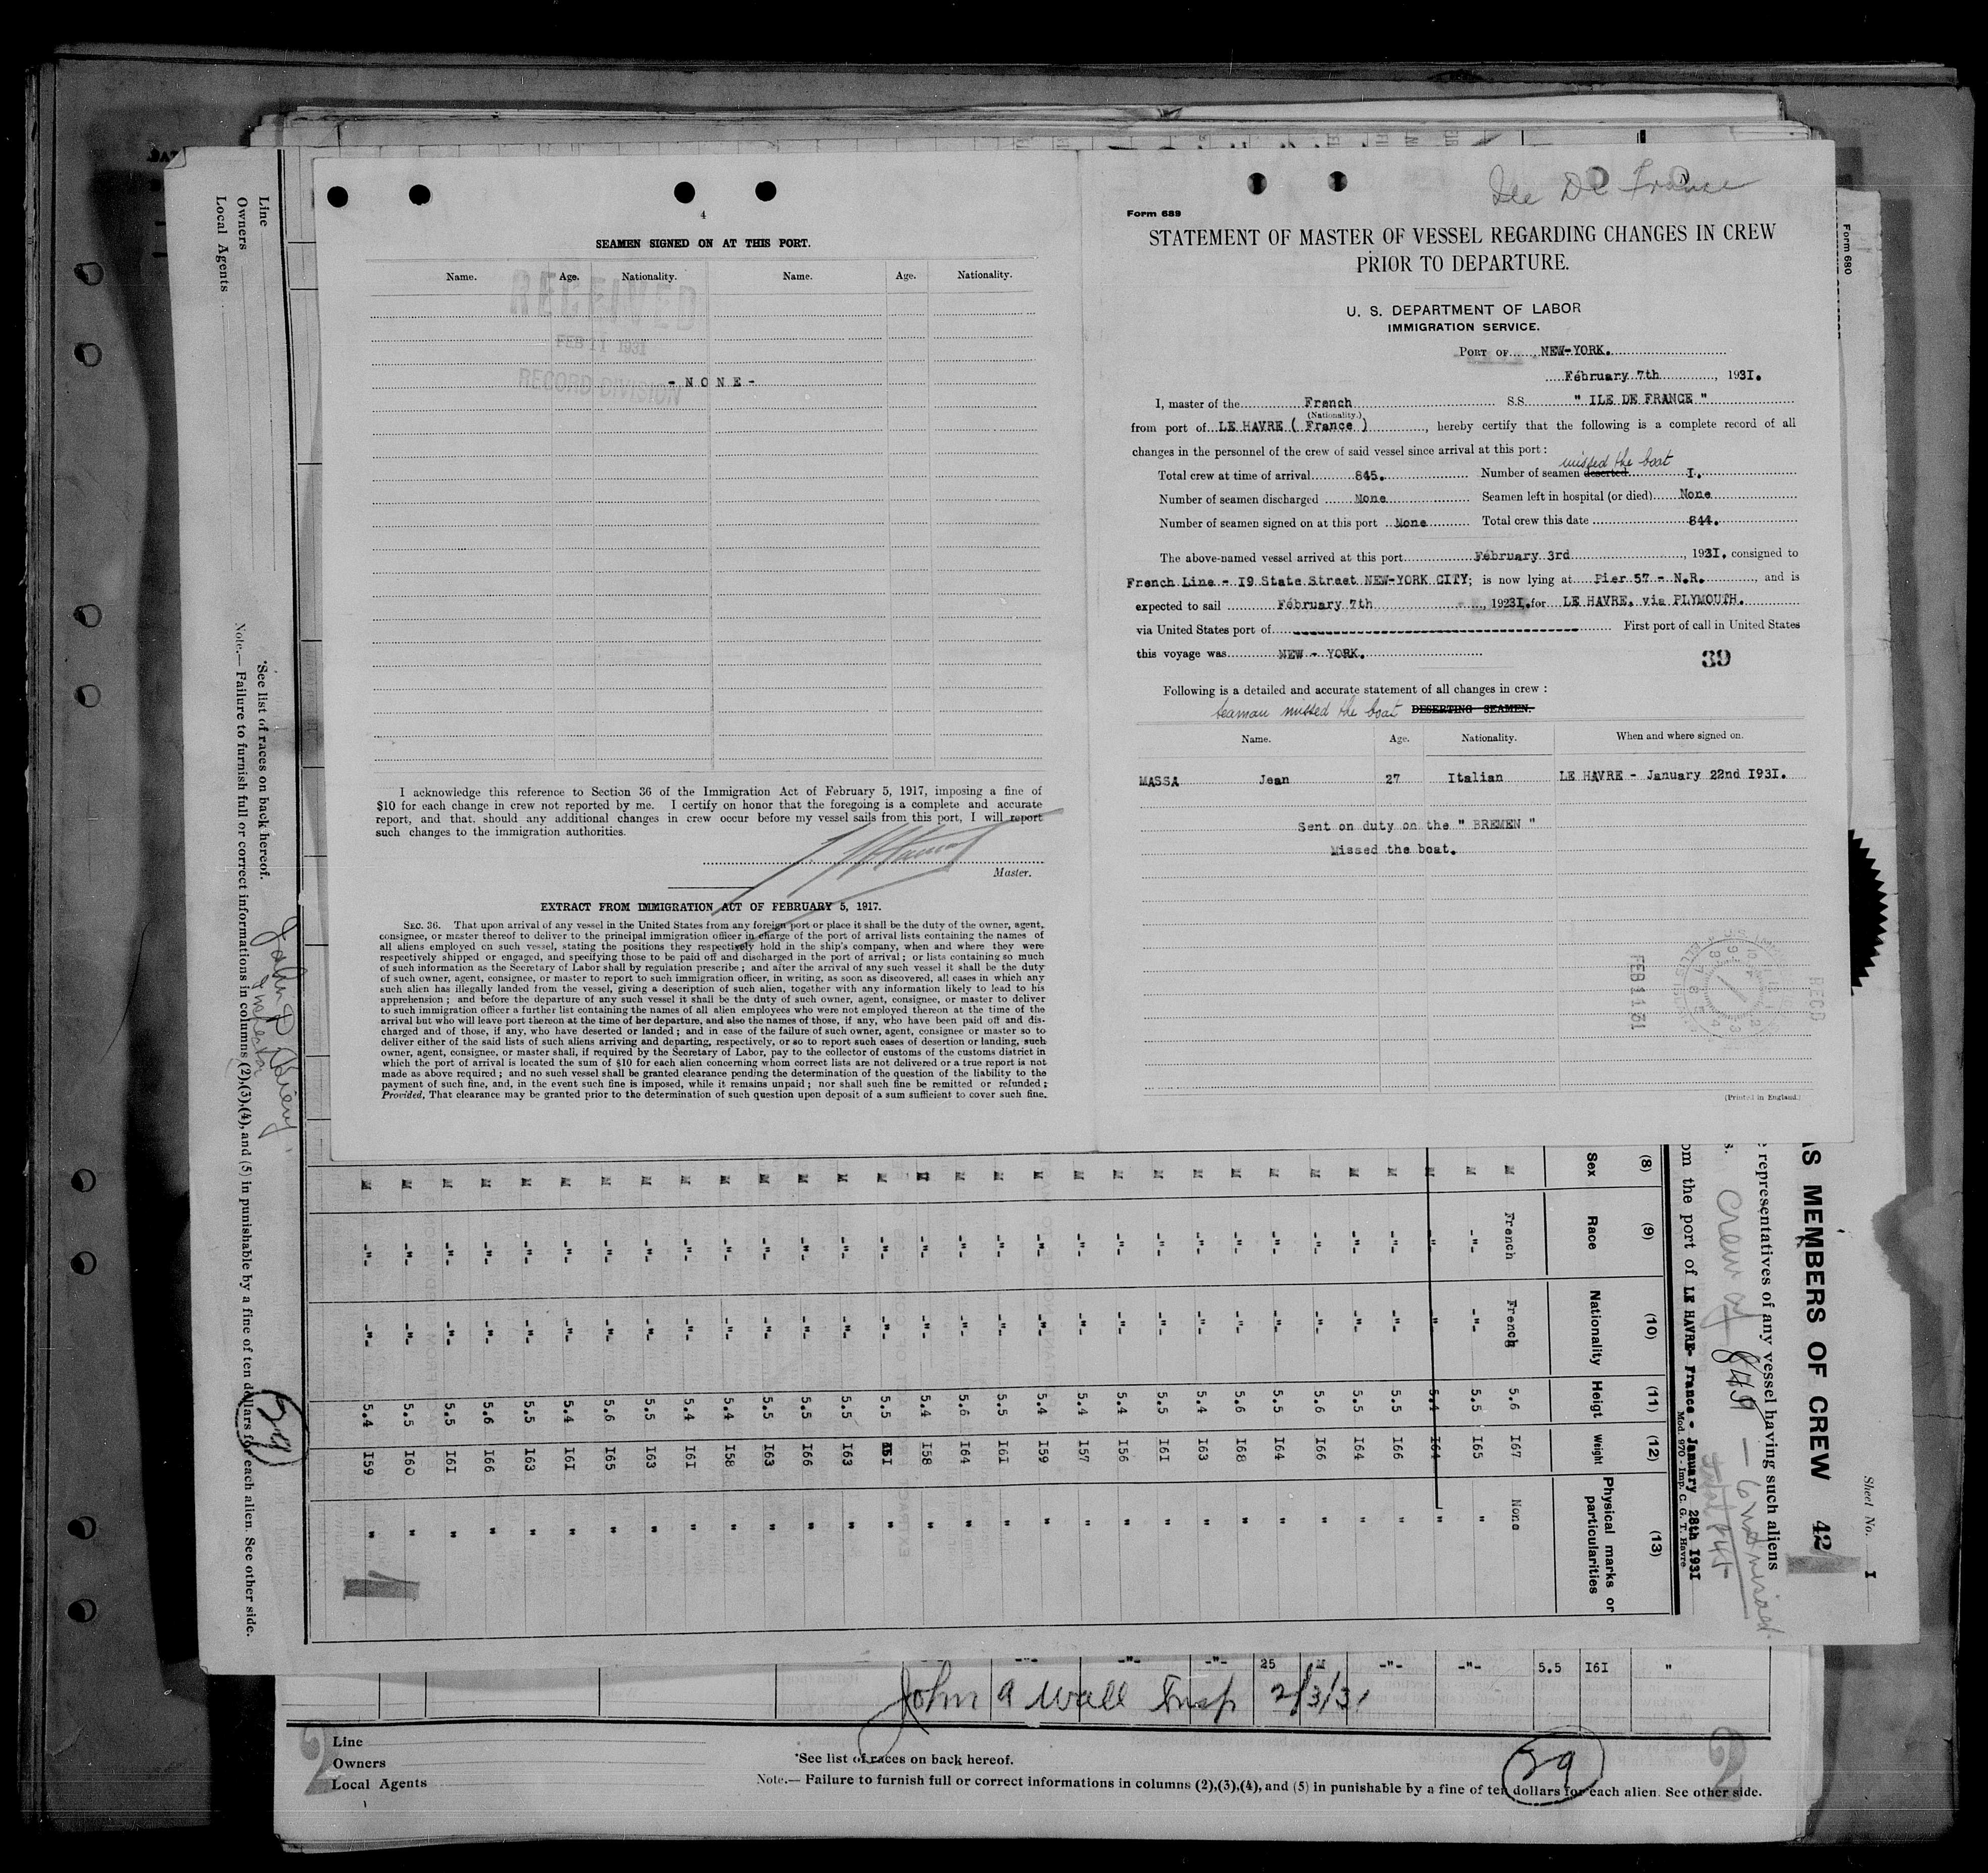 4
SEAMEN SIGNED ON AT THIS PORT.
Name. Age. Nationality. Name. Age. Nationality.
RECEIVED
FEB 11 1931
RECORD DIVISION
- N O N E -
I acknowledge this reference to Section 36 of the Immigration Act of February 5, 1917, imposing a fine of
$10 for each change in crew not reported by me. I certify on honor that the foregoing is a complete and accurate
report, and that, should any additional changes in crew occur before my vessel sails from this port, I will report
such changes to the immigration authorities.
Master.
EXTRACT FROM IMMIGRATION ACT OF FEBRUARY 5, 1917.
SEC. 36. That upon arrival of any vessel in the United States from any foreign port or place it shall be the duty of the owner, agent,
consignee, or master thereof to deliver to the principal immigration officer in charge of the port of arrival lists containing the names of
all aliens employed on such vessel, stating the positions they respectively hold in the ship's company, when and where they were
respectively shipped or engaged, and specifying those to be paid off and discharged in the port of arrival; or lists containing so much
of such information as the Secretary of Labor shall by regulation prescribe; and after the arrival of any such vessel it shall be the duty
of such owner, agent, consignee, or master to report to such immigration officer, in writing, as soon as discovered, all cases in which any
such alien has illegally landed from the vessel, giving a description of such alien, together with any information likely to lead to his
apprehension; and before the departure of any such vessel it shall be the duty of such owner, agent, consignee, or master to deliver
to such immigration officer a further list containing the names of all alien employees who were not employed thereon at the time of the
arrival but who will leave port thereon at the time of her departure, and also the names of those, if any, who have been paid off and dis-
charged and of those, if any, who have deserted or landed; and in case of the failure of such owner, agent, consignee or master so to
deliver either of the said lists of such aliens arriving and departing, respectively, or so to report such cases of desertion or landing, such
owner, agent, consignee, or master shall, if required by the Secretary of Labor, pay to the collector of customs of the customs district in
which the port of arrival is located the sum of $10 for each alien concerning whom correct lists are not delivered or a true report is not
made as above required; and no such vessel shall be granted clearance pending the determination of the question of the liability to the
payment of such fine, and, in the event such fine is imposed, while it remains unpaid; nor shall such fine be remitted or refunded:
Provided, That clearance may be granted prior to the determination of such question upon deposit of a sum sufficient to cover such fine.
Ile De France
Form 689
STATEMENT OF MASTER OF VESSEL REGARDING CHANGES IN CREW
PRIOR TO DEPARTURE.
U. S. DEPARTMENT OF LABOR
IMMIGRATION SERVICE.
PORT OF NEW-YORK.
February 7th, 1931.
I, master of the French S.S. " ILE DE FRANCE "
(Nationality.)
from port of LE HAVRE ( France ), hereby certify that the following is a complete record of all
changes in the personnel of the crew of said vessel since arrival at this port:
missed the boat
Total crew at time of arrival 845. Number of seamen deserted I.
Number of seamen discharged None Seamen left in hospital (or died) None
Number of seamen signed on at this port None Total crew this date 844.
The above-named vessel arrived at this port February 3rd, 1931, consigned to
French Line - 19 State Street NEW-YORK CITY; is now lying at Pier 57 - N.R., and is
expected to sail February 7th, 1931. for LE HAVRE. via PLYMOUTH.
via United States port of First port of call in United States
this voyage was NEW - YORK.
39
Following is a detailed and accurate statement of all changes in crew:
seaman missed the boat DESERTING SEAMEN.
Name. Age. Nationality. When and where signed on.
MASSA Jean 27 Italian LE HAVRE - January 22nd I93I.
Sent on duty on the " BREMEN "
Missed the boat.
FEB 11 31
REC'D
(Printed in England.)
Form 680
Sheet No. I
AS MEMBERS OF CREW 42
representatives of any vessel having such aliens
Crew of
om the port of LE HAVRE- France - January 28th I93I
Mod. 970 - Imp. C. G. T. Havre
(8) (9) (10) (11) (12) (13)
Sex Race Nationality Heigt Weight Physical marks or particularities
M French French 5.6 I67 None
M -"- -"- 5.5 I65 "
M -"- -"- 5.4 I64 "
M -"- -"- 5.5 I66 "
M -"- -"- 5.5 I64 "
M -"- -"- 5.6 I66 "
M -"- -"- 5.5 I64 "
M -"- -"- 5.6 I68 "
M -"- -"- 5.4 I63 "
M -"- -"- 5.5 I6I "
M -"- -"- 5.4 I56 "
M -"- -"- 5.4 I57 "
M -"- -"- 5.4 I59 "
M -"- -"- 5.5 I6I "
M -"- -"- 5.6 I64 "
M -"- -"- 5.4 I58 "
M -"- -"- 5.5 I6I "
M -"- -"- 5.5 I63 "
M -"- -"- 5.5 I66 "
M -"- -"- 5.5 I63 "
M -"- -"- 5.4 I58 "
M -"- -"- 5.4 I6I "
M -"- -"- 5.5 I63 "
M -"- -"- 5.6 I65 "
M -"- -"- 5.4 I6I "
M -"- -"- 5.5 I63 "
M -"- -"- 5.6 I66 "
M -"- -"- 5.5 I6I "
M -"- -"- 5.5 I60 "
M -"- -"- 5.4 I59 "
Line
Owners
Local Agents
*See list of races on back hereof.
Note.— Failure to furnish full or correct informations in columns (2),(3),(4), and (5) in punishable by a fine of ten dollars for each alien. See other side.
-"- -"- -"- 25 M -"- -"- 5.5 I6I "
John A Wall Insp 2/3/31
2
Line
Owners
Local Agents
*See list of races on back hereof.
Note.— Failure to furnish full or correct informations in columns (2),(3),(4), and (5) in punishable by a fine of ten dollars for each alien. See other side.
39
2